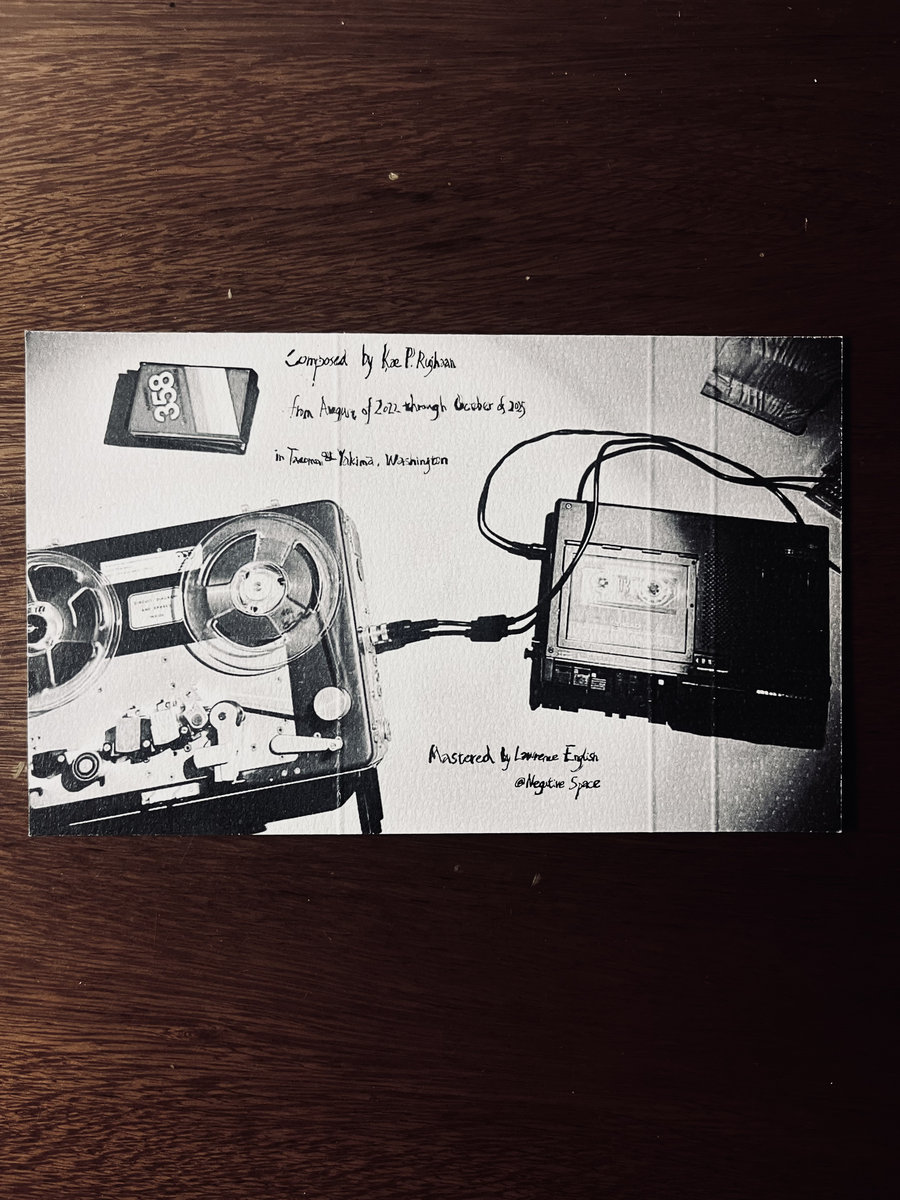 358
Composed by Kae P. Rughaan
from August of 2022 through October of 2025
in Tacoma & Yakima, Washington
CIRCUIT DIAGRAM
AND
INSIDE
Mastered by Lawrence English
@Negative Space